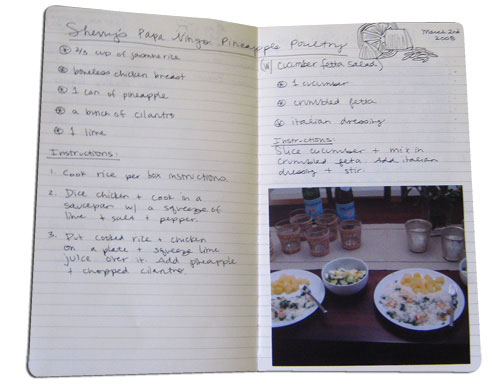 Sherry's Papa Vingo Pineapple Poultry
⊛ 2/3 cup of jasmine rice
⊛ boneless chicken breast
⊛ 1 can of pineapple
⊛ a bunch of cilantro
⊛ 1 lime
Instructions:
1. Cook rice per box instructions.
2. Dice chicken + cook in a
saucepan w/ a squeeze of
lime + salt + pepper.
3. Put cooked rice + chicken
on a plate + squeeze lime
juice over it. Add pineapple
+ chopped cilantro.
March 2nd
2008
(w/ cucumber fetta salad)
⊛ 1 cucumber
⊛ crumbled fetta
⊛ italian dressing
Instructions:
Slice cucumber + mix in
crumbled feta. Add italian
dressing + stir.